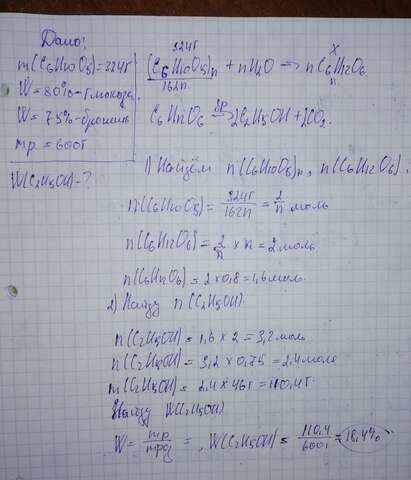 Дано:
m(C6H10O5)=324г
W=80%-глюкоза.
W=75%-брожен
mp=600г
W(C2H5OH)-?
324г
x
(C6H10O5)n + nH2O => nC6H12O6
162n
n
C6H12O6 => 2C2H5OH + 2CO2.
1) Найдём n(C6H10O5)n, n(C6H12O6).
n(C6H10O5)= 324г/162n = 2/n моль
n(C6H12O6)= 2/n x n = 2 моль
n(C6H12O6)= 2x0.8=1,6моль.
2) Найду n(C2H5OH)
n(C2H5OH)=1,6 x 2 = 3,2моль
n(C2H5OH)= 3,2 x 0,75 = 2.4моль
m(C2H5OH)= 2.4 x 46г = 110.4г.
Найду W(C2H5OH)
W= mp/mpq =, W(C2H5OH)= 110.4/600г = 18.4%